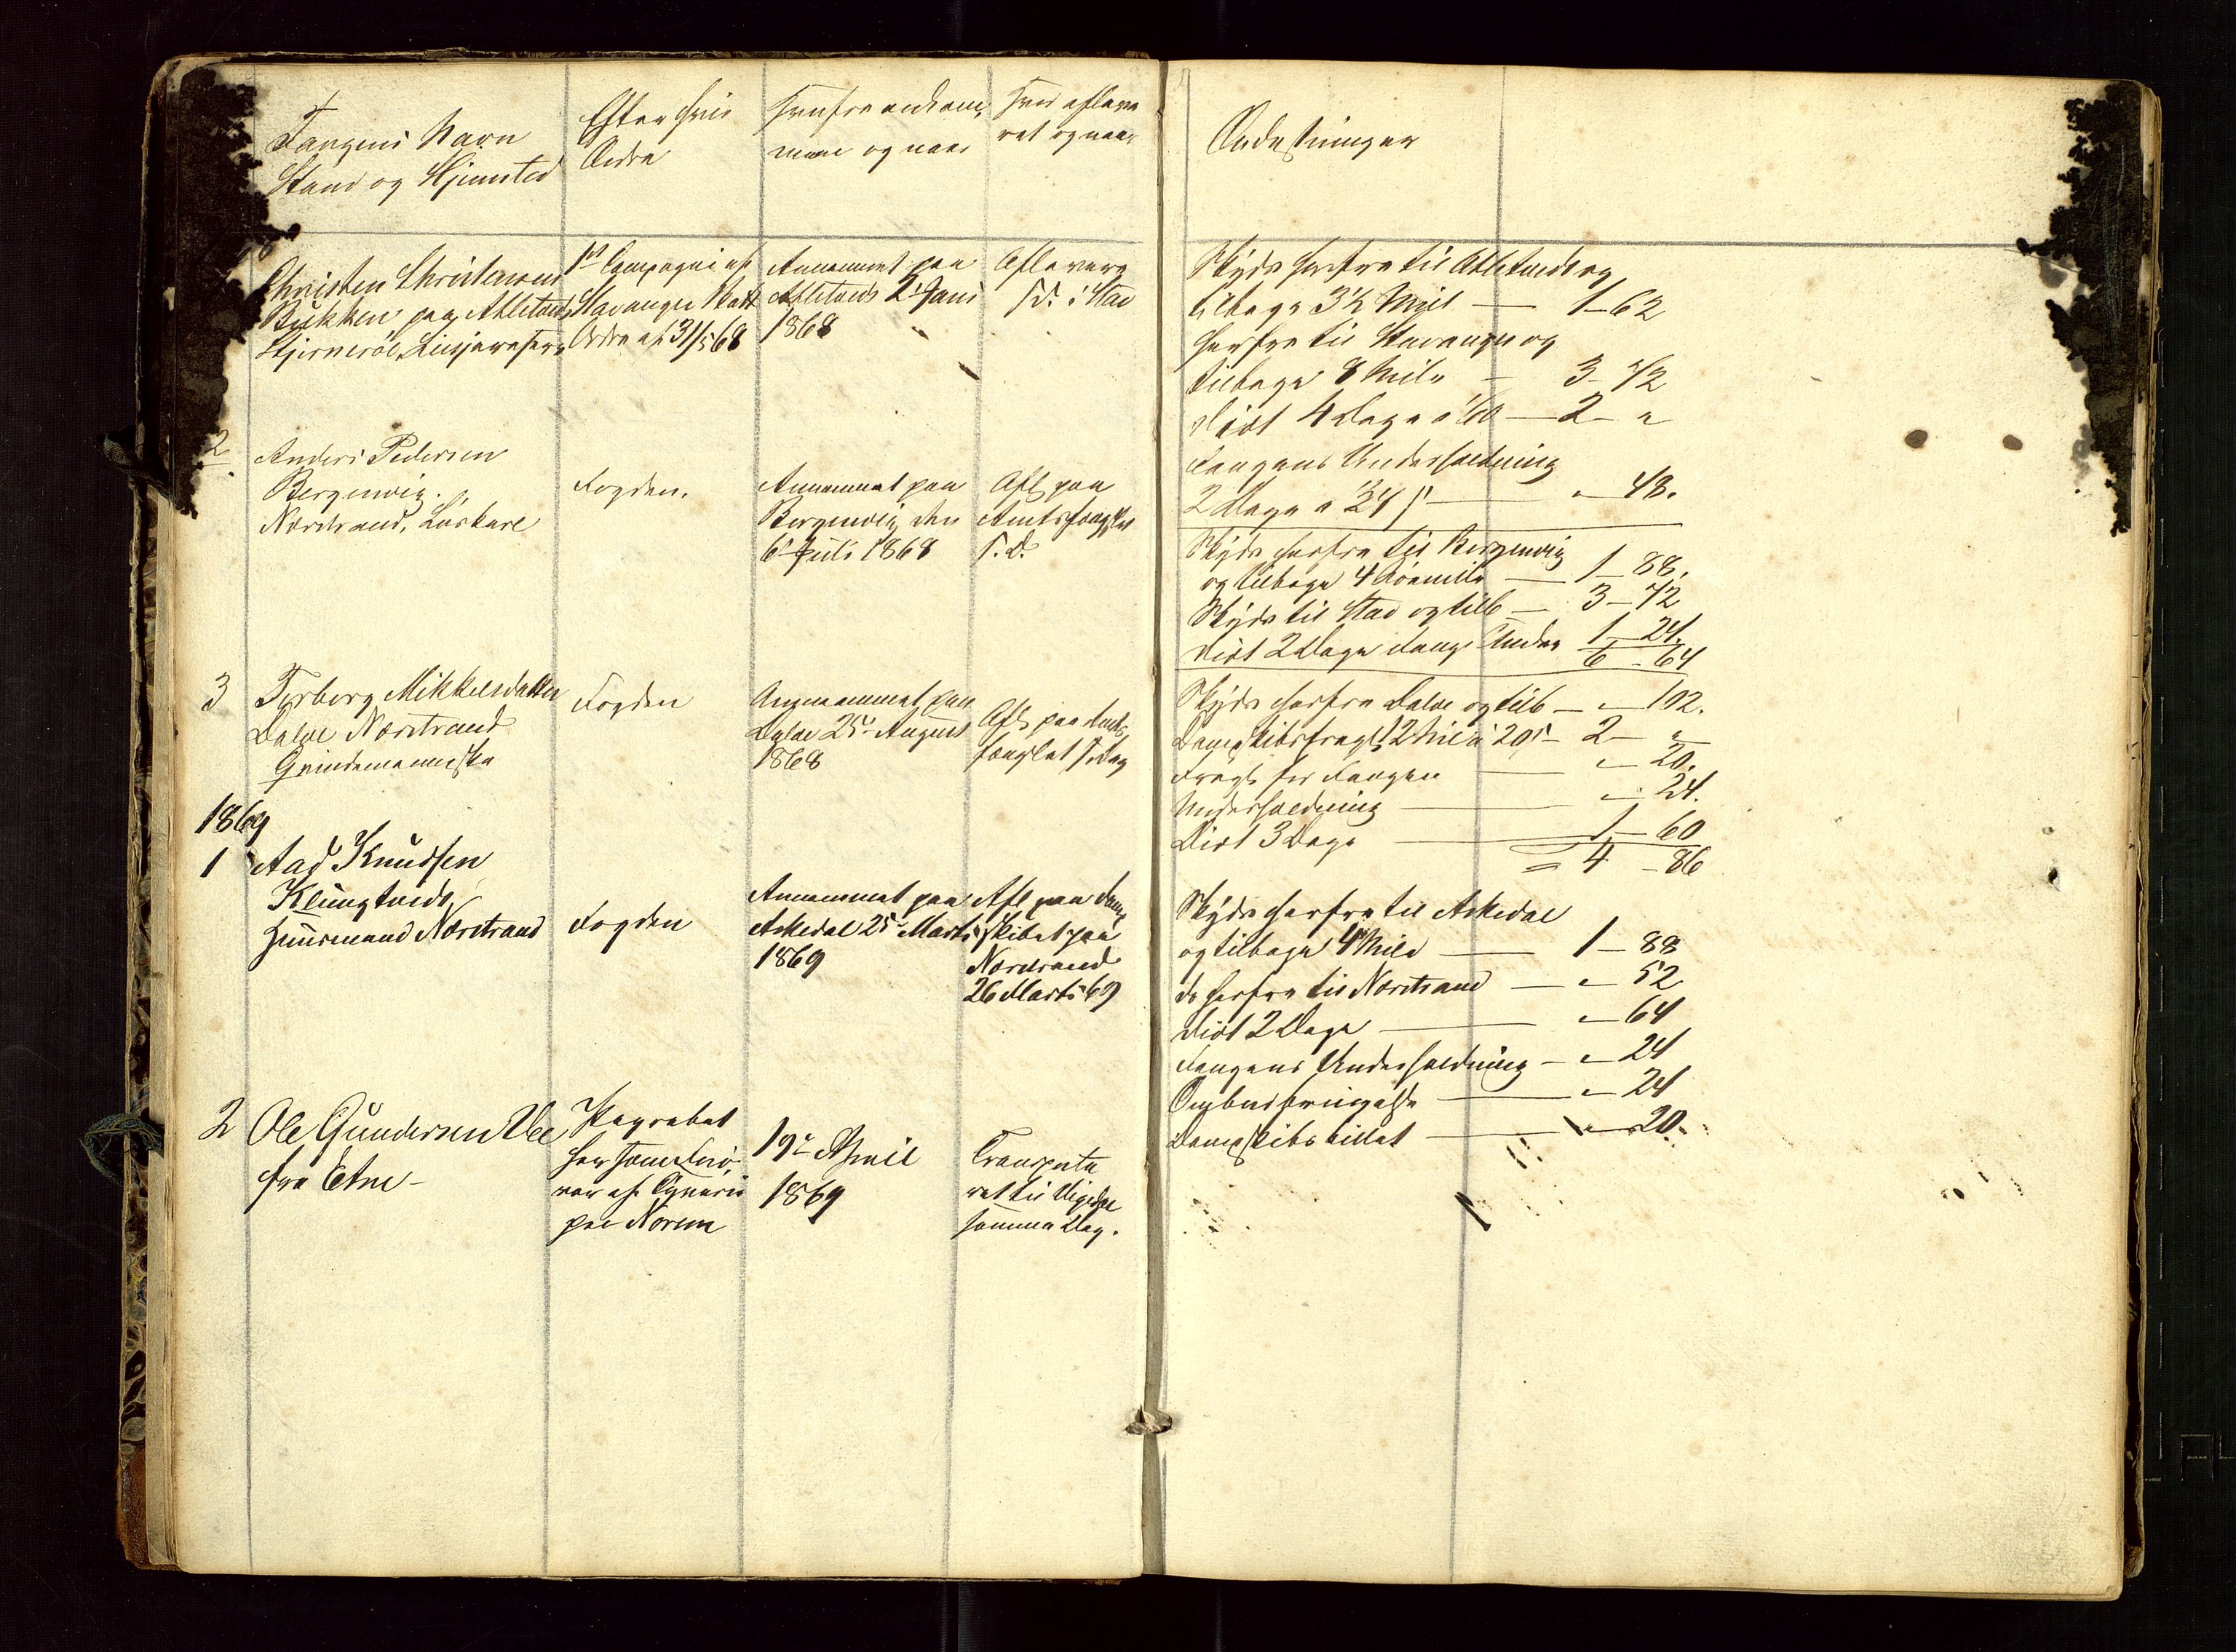 Fangens Navn
Stand og Hjemsted
Efter hvis
Ordre
Hvorfra ankom-
men og naar
Hvor afleve
ret og naar
Anke­tninger
Christen Christensen
Bukken paa Atletveds
Stjernerøe
1ste Compagni af
Stavanger Batl
Ordre af 31/5 68
Annammet paa
Atletveds 2 Juni
1868
Afleveret
s. D. i Stav
Skyds herfra til Atletveds og
tilbage 3½ Miil — 1-62
herfra til Stavanger og
tilbage 8 Mile — 3-72
Diæt 4 Dage a 60 — 2 - "
Fangens Underholdning
2 Dage a 24 s — " - 48.
2
Anders Pedersen
Bergevig.
Nærstrand, Løskarl
Fogden.
Annammet paa
Bergevig den
6te Juli 1868
Afl paa
Amtsfængslet
s. D.
Skyds herfra til Bergevig
og tilbage 4 Søemile — 1-88.
Skyds til Stav og tilb — 3-72
Diæt 2 Dage Fang Under 1-24.
6-64
3
Torborg Mikkelsdatter
Dalve Nærstrand
Qvindemenneske
Fogden
Annammet paa
Dalve 25de August
1868
Afl paa Amts
fængslet s. Dag
Skyds herfra Dalve og tilb — " - 102.
Dampskibsfragt 12 Mil a 20 s — 2 - "
Fragt for Fangen — " - 20.
Underholdning — " - 24.
Diæt 3 Dage — 1-60
= 4 - 86
1869
1
Aad Knudsen
Klungtveds
Huusmand Nærstrand
Fogden
Annammet paa
Askedal 25de Marts
1869
Afl paa Damp
skibet paa
Nærstrand
26 Marts 69
Skyds herfra til Askedal
og tilbage 4 Mile — 1-88
do herfra til Nærstrand — " - 52
Diæt 2 Dage — " - 64
Fangens Underholdning — " - 24
Ombudbringelse — " - 24
Dampskibsbillet — " - 20.
2
Ole Gundersen Vee
fra Etne -
paa Norem
19de April
1869
Transporte
ret til Vigedal
samme Dag.